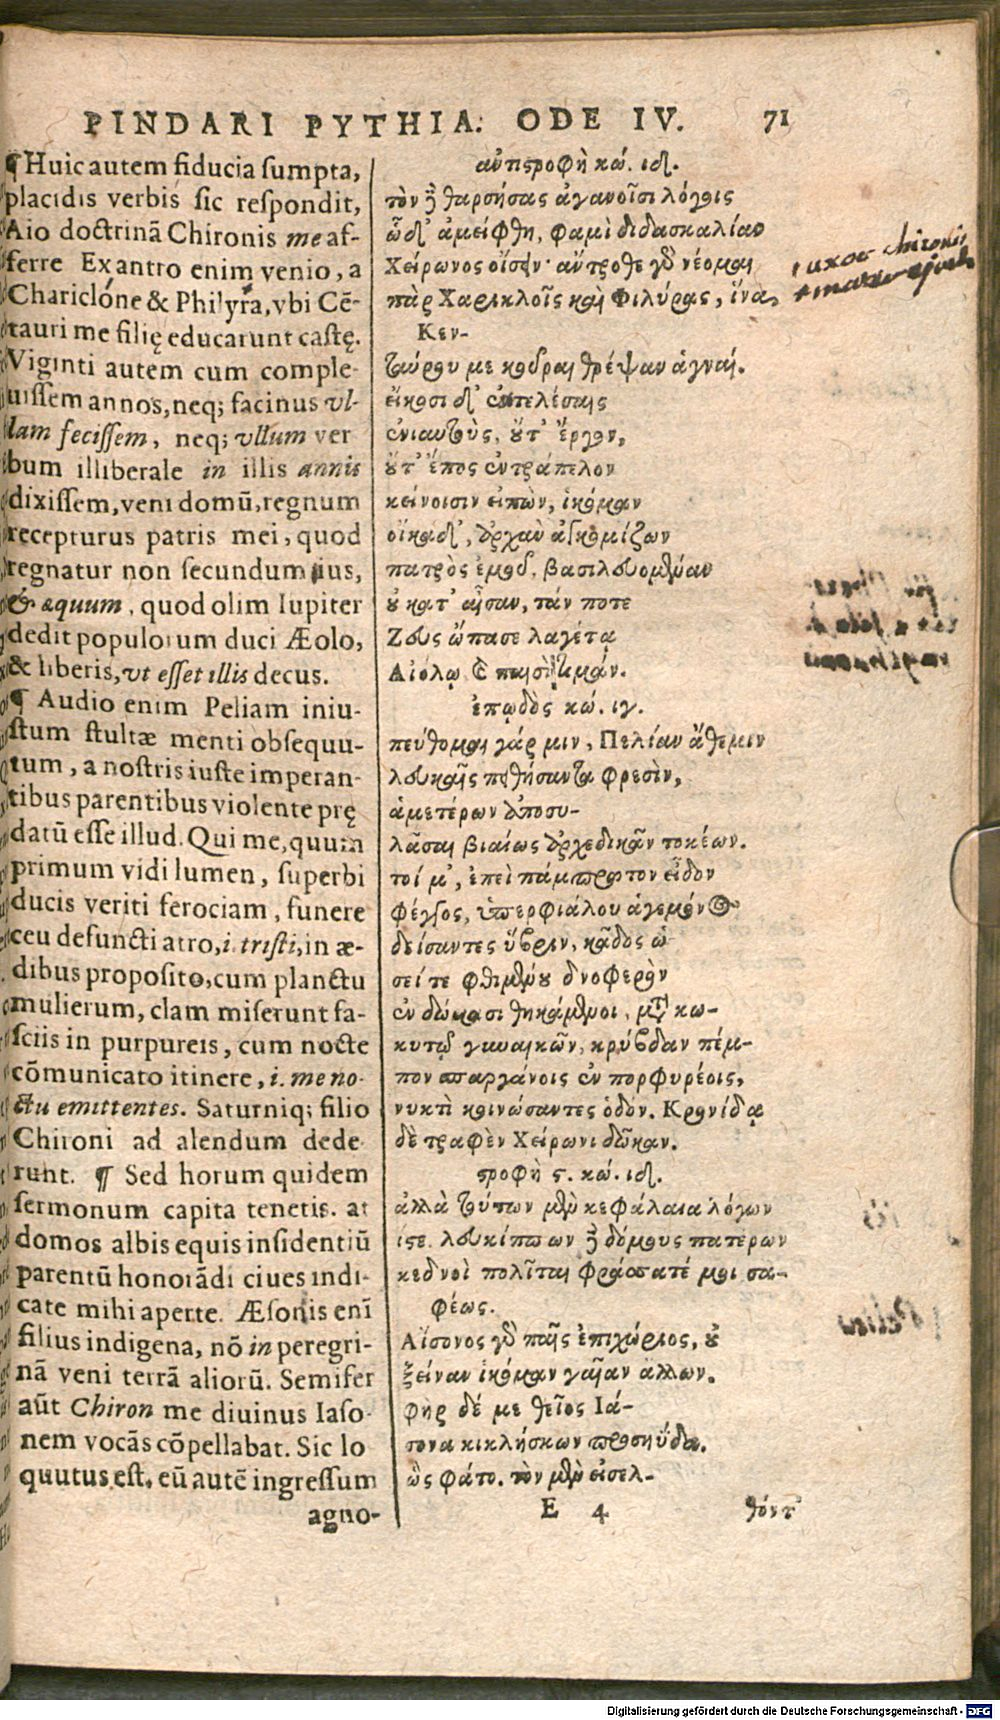 PINDARI PYTHIA. ODE IV. 71
¶ Huic autem fiducia sumpta,
placidis verbis sic respondit,
Aio doctrinã Chironis me af-
ferre Ex antro enim venio, a
Chariclóne & Philyra, vbi Cẽ-
tauri me filię educarunt castę.
Viginti autem cum comple-
uissem annos, neq; facinus vl-
lam fecissem, neq; vllum ver
bum illiberale in illis annis
dixissem, veni domũ, regnum
recepturus patris mei, quod
regnatur non secundum ius,
& æquum, quod olim Iupiter
dedit populorum duci Æolo,
& liberis, vt esset illis decus.
¶ Audio enim Peliam iniu-
stum stultæ menti obsequu-
tum, a nostris iuste imperan-
tibus parentibus violente prę
datũ esse illud. Qui me, quum
primum vidi lumen, superbi
ducis veriti ferociam, funere
ceu defuncti atro, i. tristi, in æ-
dibus proposito, cum planctu
mulierum, clam miserunt fa-
sciis in purpureis, cum nocte
cõmunicato itinere, i. me no-
ctu emittentes. Saturniq; filio
Chironi ad alendum dede
runt. ¶ Sed horum quidem
sermonum capita tenetis. at
domos albis equis insidentiũ
parentũ honorãdi ciues indi-
cate mihi aperte. Æsonis enĩ
filius indigena, nõ in peregri-
nã veni terrã aliorũ. Semifer
aũt Chiron me diuinus Iaso-
nem vocãs cõpellabat. Sic lo
quutus est. eũ autẽ ingressum
agno-
ἀντιστροφὴ κώ. ιδ.
τὸν δὲ θαρσήσας ἀγανοῖσι λόγοις
ὧδ' ἀμείφθη, φαμὶ διδασκαλίαν
Χείρωνος οἴσειν· ἄντροθε γὸ νέομαι
πὰρ Χαρικλοῖς καὶ Φιλύρας, ἵνα
Κεν-
ταύρου με κοῦραι θρέψαν ἁγναί.
εἴκοσι δ' ἐκτελέσαις
ἐνιαυτοὺς, οὔτ' ἔργον,
οὔτ' ἔπος ἐντράπελον
κείνοισιν εἰπὼν, ἱκόμαν
οἴκαδ', ἀρχὰν ἀγκομίζων
πατρὸς ἐμοῦ, βασιλευομέναν
οὐ κατ' αἶσαν, τάν ποτε
Ζεὺς ὤπασε λαγέτα
Αἰόλῳ καὶ παισὶ τιμάν.
ἐπῳδὸς κώ. ιγ.
πεύθομαι γάρ μιν, Πελίαν ἄθεμιν
λευκαῖς πιθήσαντα φρεσὶν,
ἁμετέρων ἀποσυ-
λᾶσαι βιαίως ἀρχεδικᾶν τοκέων.
τοί μ', ἐπεὶ πάμπρωτον εἶδον
φέγγος, ὑπερφιάλου ἁγεμόνος
δείσαντες ὕβριν, κᾶδος ὡ
σεί τε φθιμένου δνοφερὸν
ἐν δώμασι θηκάμενοι, μετὰ κω-
κυτῷ γυναικῶν, κρύβδαν πέμ-
πον σπαργάνοις ἐν πορφυρέοις,
νυκτὶ κοινώσαντες ὁδόν. Κρονίδᾳ
δὲ τραφὲν Χείρωνι δῶκαν.
στροφὴ ς. κώ. ιδ.
ἀλλὰ τούτων μὲν κεφάλαια λόγων
ἴστε. λευκίππων δὲ δόμους πατέρων
κεδνοὶ πολῖται φράσατέ μοι σα-
φέως.
Αἴσονος γὸ παῖς ἐπιχώριος, οὐ
ξείναν ἱκόμαν γαῖαν ἄλλων.
φὴρ δέ με θεῖος Ἰά-
σονα κικλήσκων προσηύδα.
ὣς φάτο. τὸν μὲν εἰσελ-
E 4 θόντ'
Digitalisierung gefördert durch die Deutsche Forschungsgemeinschaft - DFG